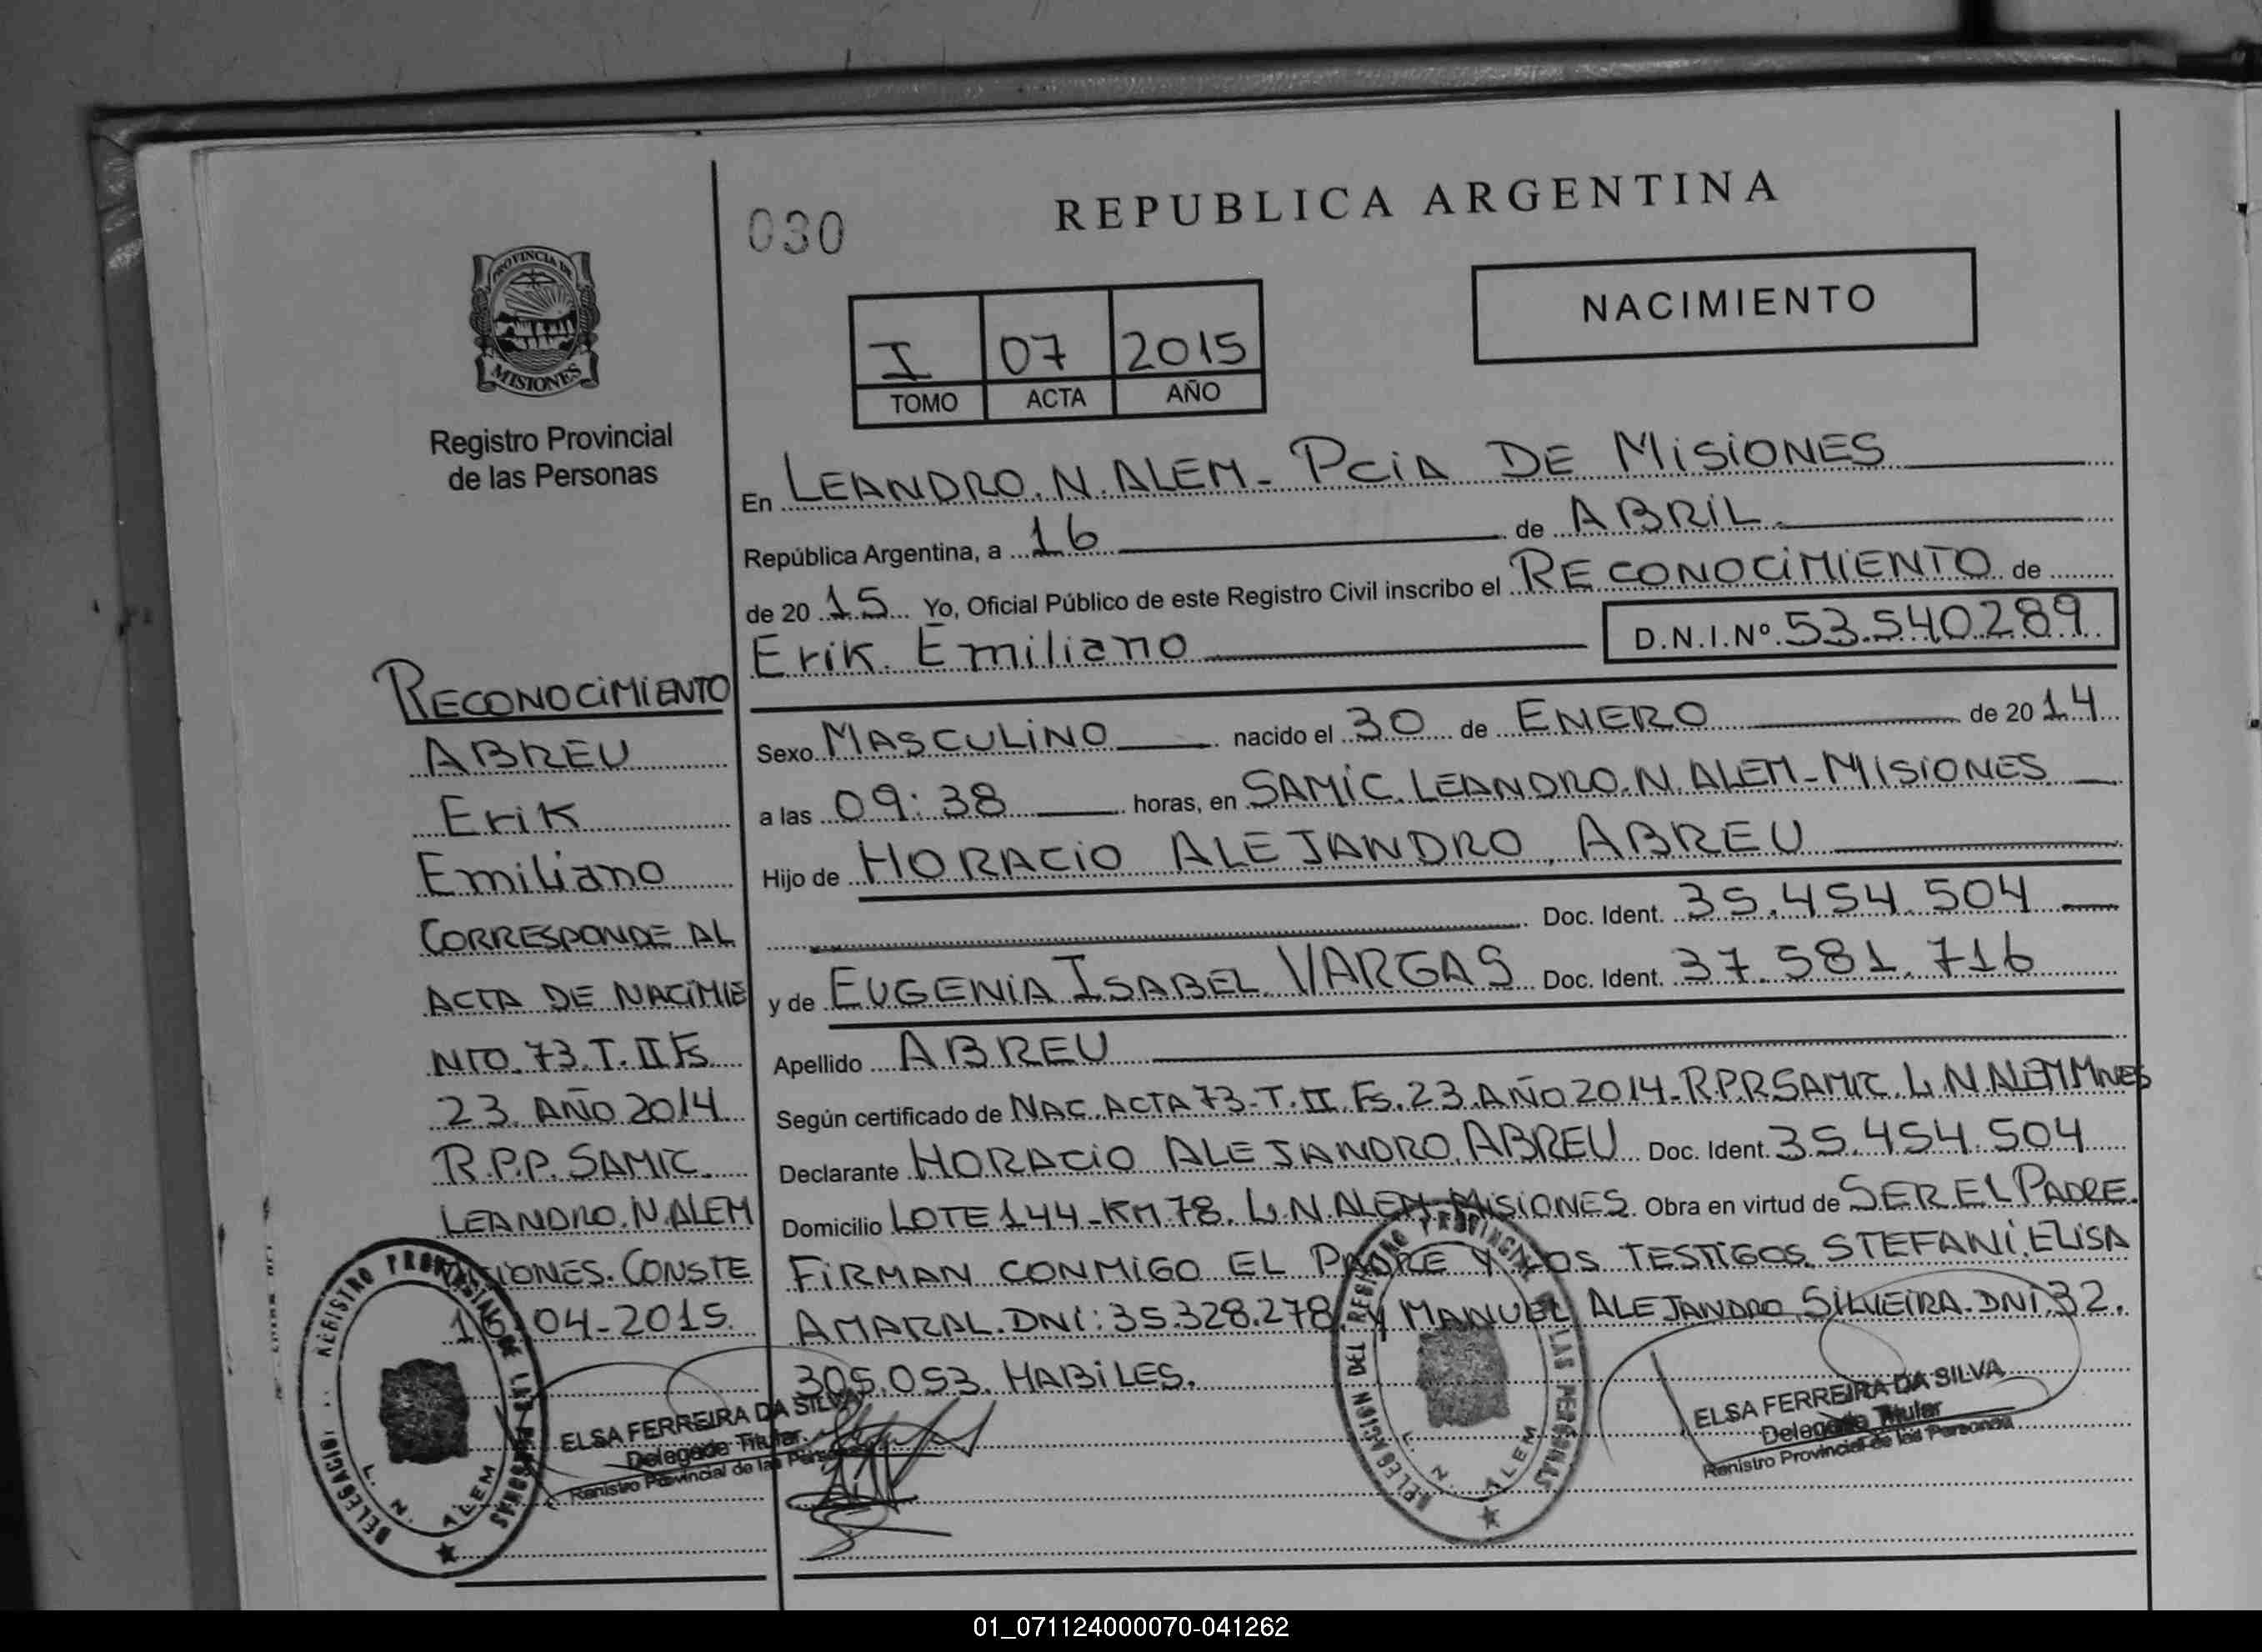 PROVINCIA DE
MISIONES
Registro Provincial
de las Personas
RECONOCIMIENTO
ABREU
Erik
Emiliano
CORRESPONDE AL
ACTA DE NACIMIE
NTO. 73. T. II Fs
23. AÑO 2014
R.P.P. SAMIC.
LEANDRO. N. ALEM
MISIONES. CONSTE
16-04-2015.
ELSA FERREIRA DA SILVA
Delegada Titular
Registro Provincial de las Personas
DELEGACION REGISTRO PROVINCIAL DE LAS PERSONAS
L. N. ALEM
030
REPUBLICA ARGENTINA
NACIMIENTO
I 07 2015
TOMO ACTA AÑO
En LEANDRO. N. ALEM - PCiA DE MiSiONES
República Argentina, a 16 de ABRIL.
de 2015 Yo, Oficial Público de este Registro Civil inscribo el RECONOCIMIENTO de
Erik Emiliano D.N.I.Nº 53.540.289
Sexo MASCULINO nacido el 30 de ENERO de 2014
a las 09:38 horas, en SAMIC. LEANDRO. N. ALEM - MISIONES
Hijo de HORACIO ALEJANDRO ABREU
Doc. Ident. 35.454.504
y de EUGENIA ISABEL VARGAS Doc. Ident. 37.581.716
Apellido ABREU
Según certificado de NAC. ACTA 73-T. II. Fs. 23. AÑO 2014-R.P.P. SAMIC. L. N. ALEM MNES
Declarante HORACIO ALEJANDRO ABREU Doc. Ident. 35.454.504
Domicilio LOTE 144 - KM 78. L. N. ALEM - MISIONES. Obra en virtud de SER EL PADRE.
FIRMAN CONMIGO EL PADRE Y LOS TESTIGOS. STEFANI. ELISA
AMARAL. DNI: 35.328.278. Y MANUEL ALEJANDRO SILVEIRA. DNI 32.
305.053. HABILES.
DELEGACION DEL REGISTRO PROVINCIAL DE LAS PERSONAS
L. N. ALEM
ELSA FERREIRA DA SILVA
Delegada Titular
Registro Provincial de las Personas
01_071124000070-041262